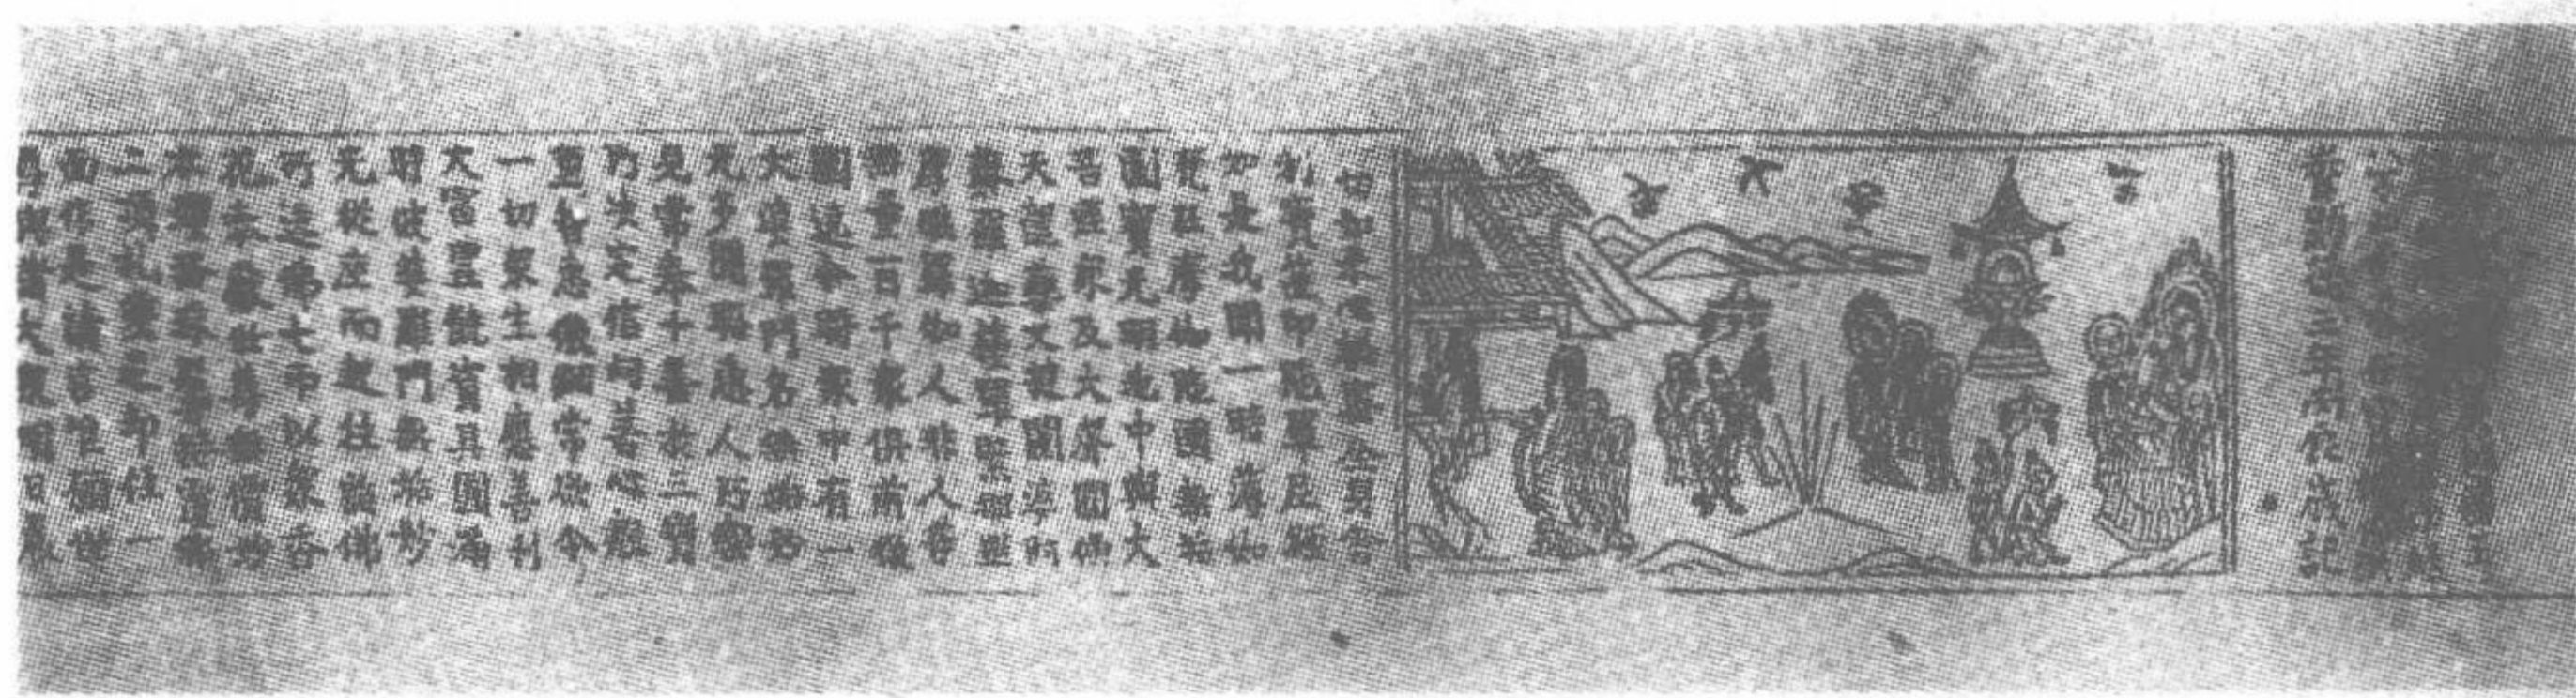 顯德三年丙辰歲記
切如來心秘密全身舍
利寶篋印陀羅尼經
如是我聞一時薄伽
梵在摩伽陀國無垢
園寶光明池中與大
菩薩衆及大聲聞僧
天龍藥叉健闥婆阿
蘇羅迦樓羅緊那羅
摩睺羅伽人非人等
無量百千衆俱前後
圍遶尒時衆中有一
大婆羅門名無垢妙
光多聞聰慧人所樂
見常奉十善於三寶
所決定信向善心殷
重智恵微細常欲令
一切衆生相應善利
大富豐饒資具圓滿
時彼婆羅門無垢妙
光從座而起往詣佛
所遶佛七帀以衆香
花奉獻世尊無價妙
衣瓔珞珠鬘持覆佛
二頂礼雙足却住一
面作是請言唯願世
尊與諸大衆明日晨